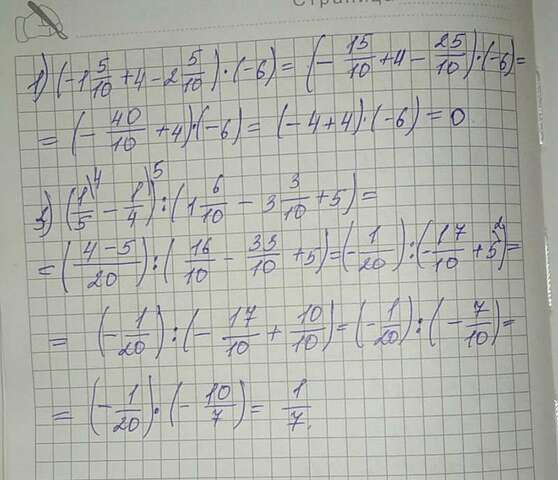 Страница
1) (-1 5/10 + 4 - 2 5/10) · (-6) = (- 15/10 + 4 - 25/10) · (-6) =
= (- 40/10 + 4) · (-6) = (-4+4) · (-6) = 0
3) (1/5 \4 - 1/4 \5) : (1 6/10 - 3 3/10 + 5) =
= (4-5/20) : (16/10 - 33/10 + 5) = (- 1/20) : (- 17/10 + 5 \2) =
= (- 1/20) : (- 17/10 + 10/10) = (- 1/20) : (- 7/10) =
= (- 1/20) · (- 10/7) = 1/7.